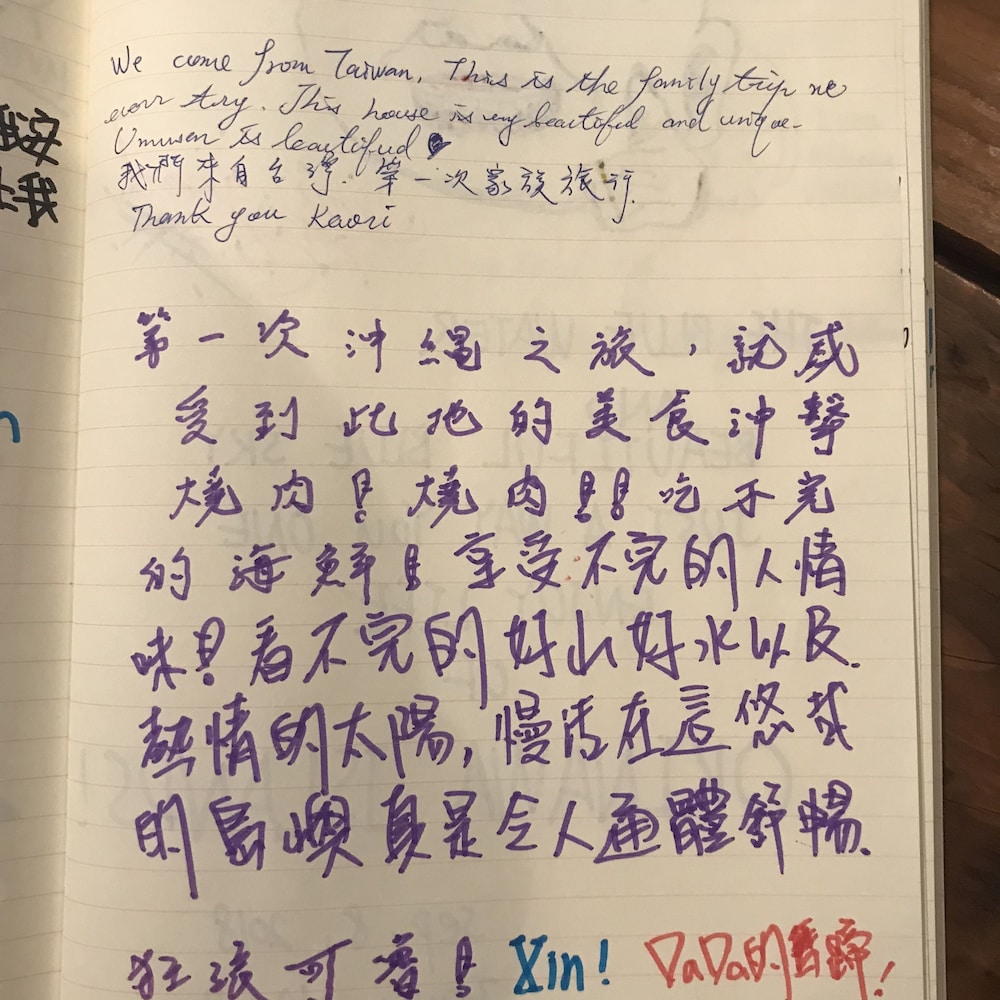 We come from Taiwan. This is the family trip we
ever try. This house is very beautiful and unique.
Umusun is beautiful
我們來自台灣. 第一次家族旅行.
Thank you Kaori
第一次沖繩之旅,就感
受到此地的美食沖擊
燒肉!燒肉!!吃不完
的海鮮!!享受不完的人情
味!!看不完的好山好水以及
熱情的太陽,慢活在這悠哉
的島嶼真是令人通體舒暢.
狂 可 ! Xin! DaDa的 !